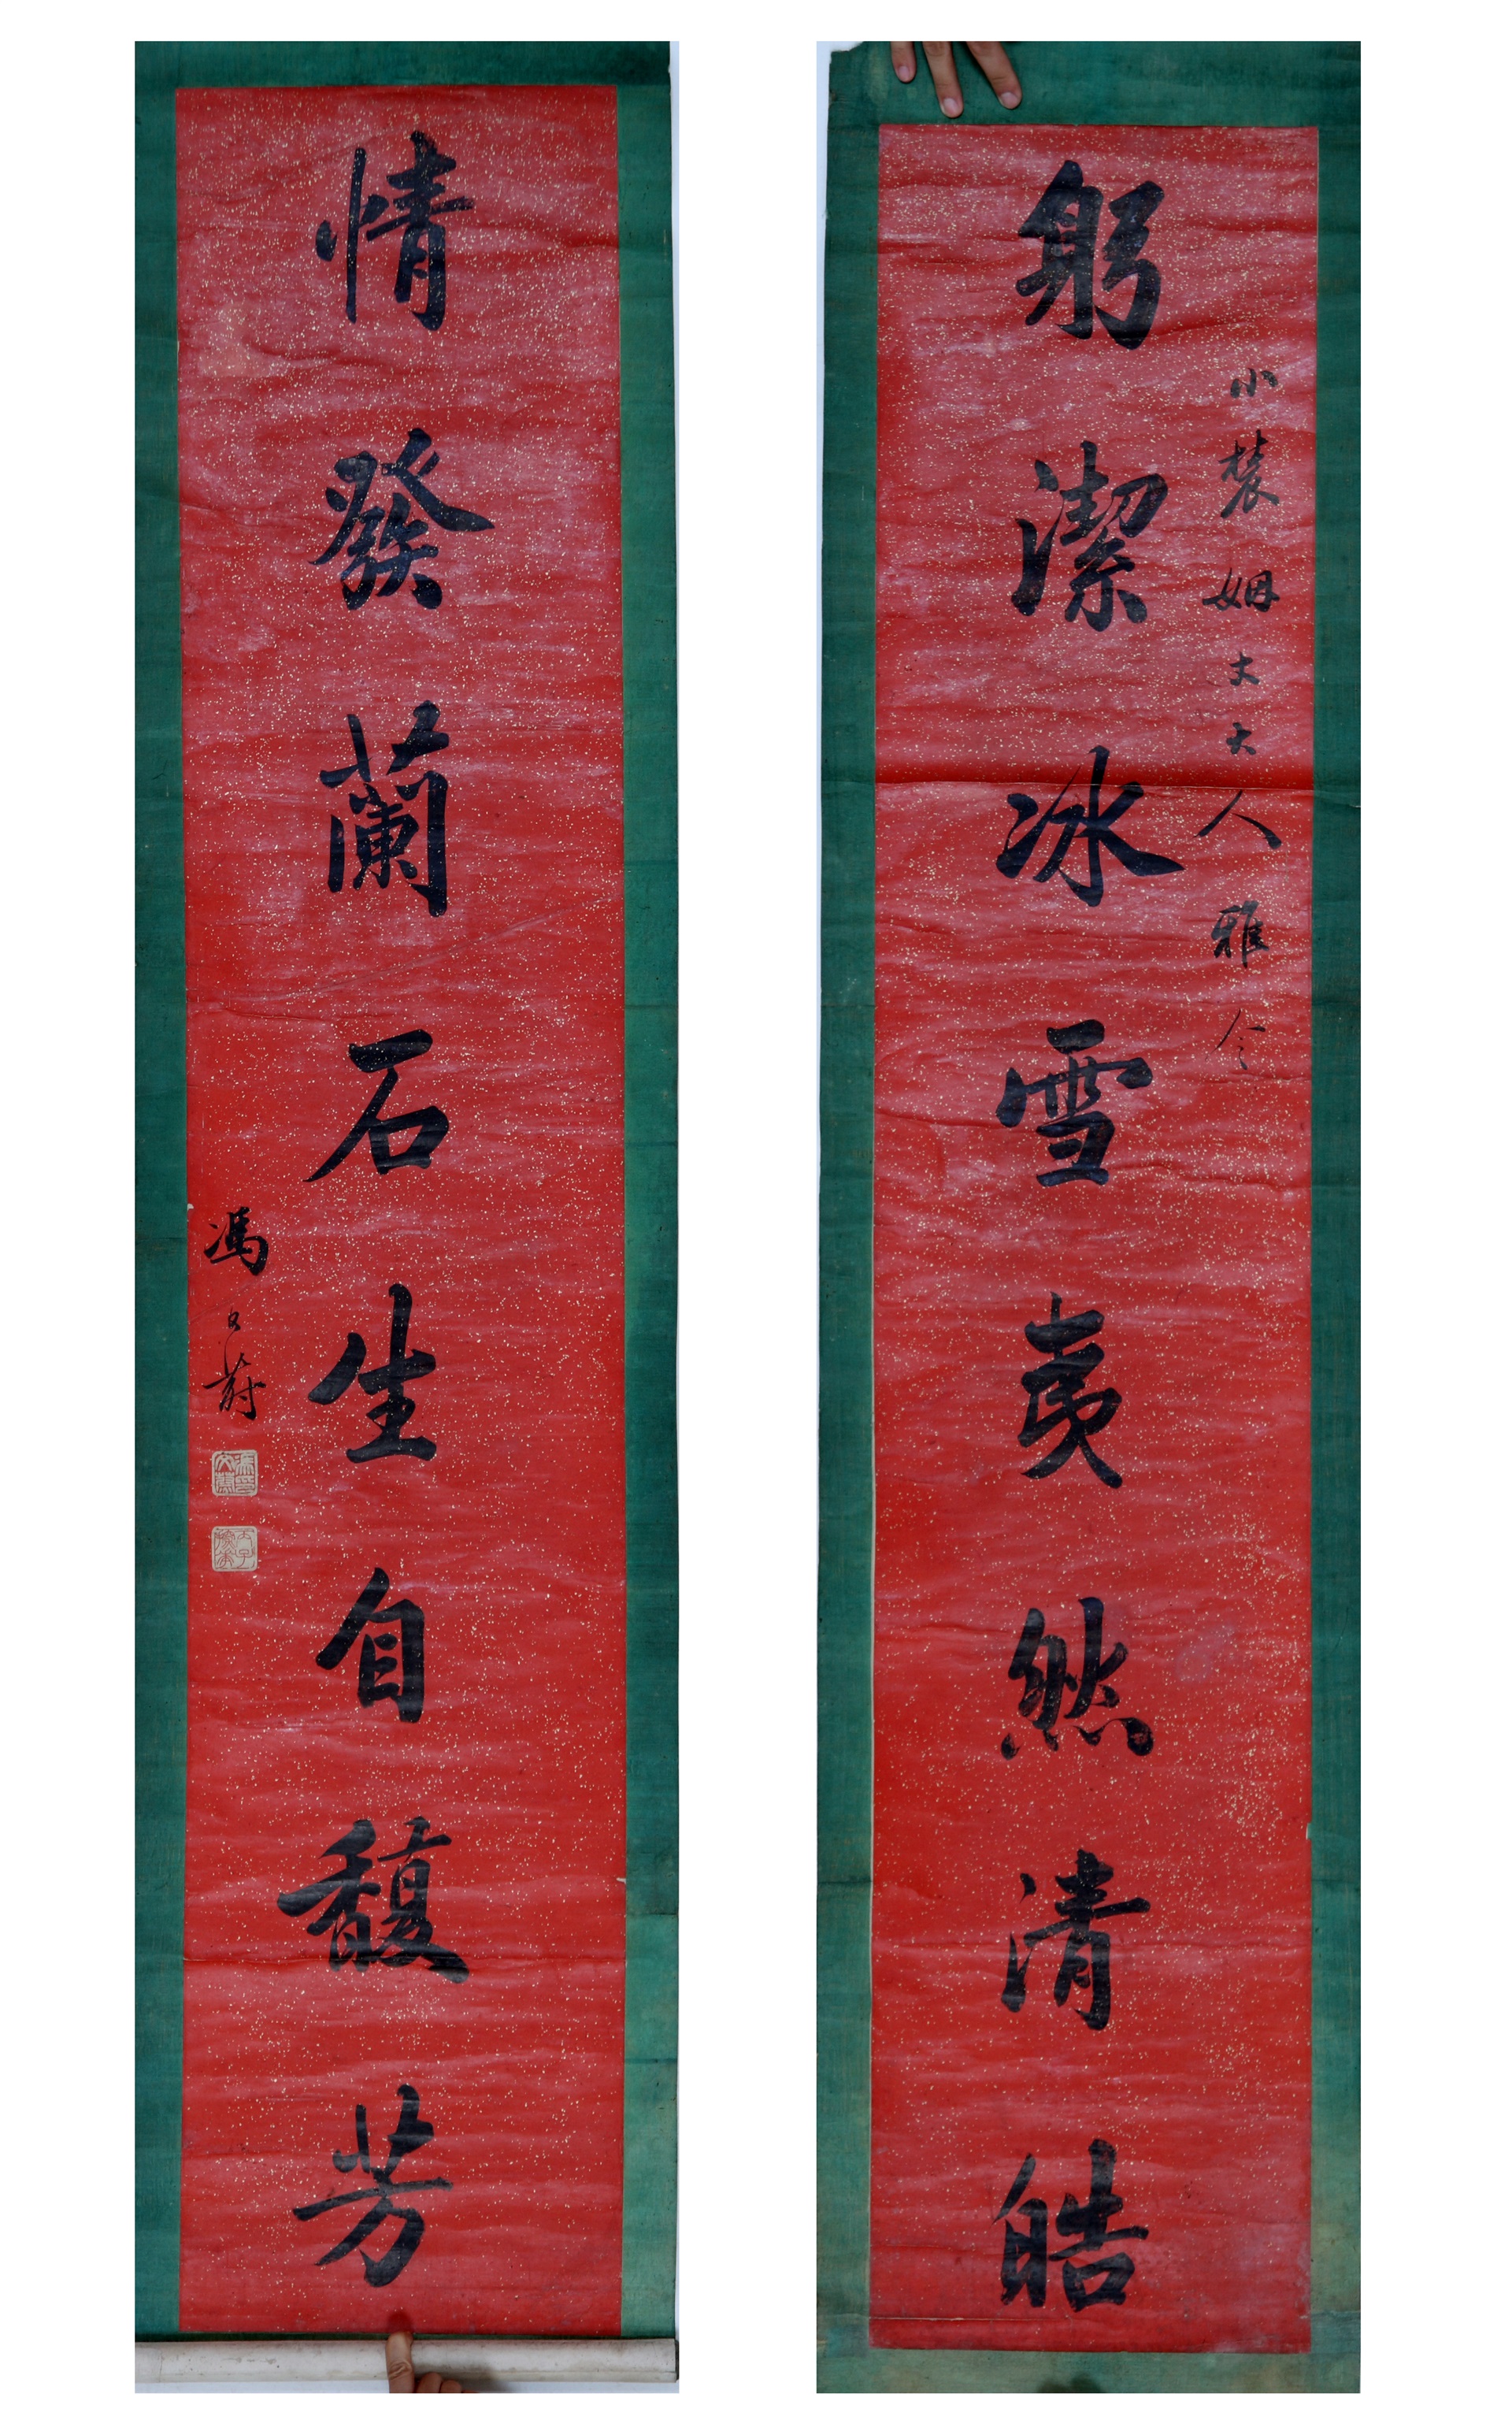 小裴姻丈大人雅令
躬潔冰雪夷然清皓
情發蘭石生自馥芳
馮文蔚